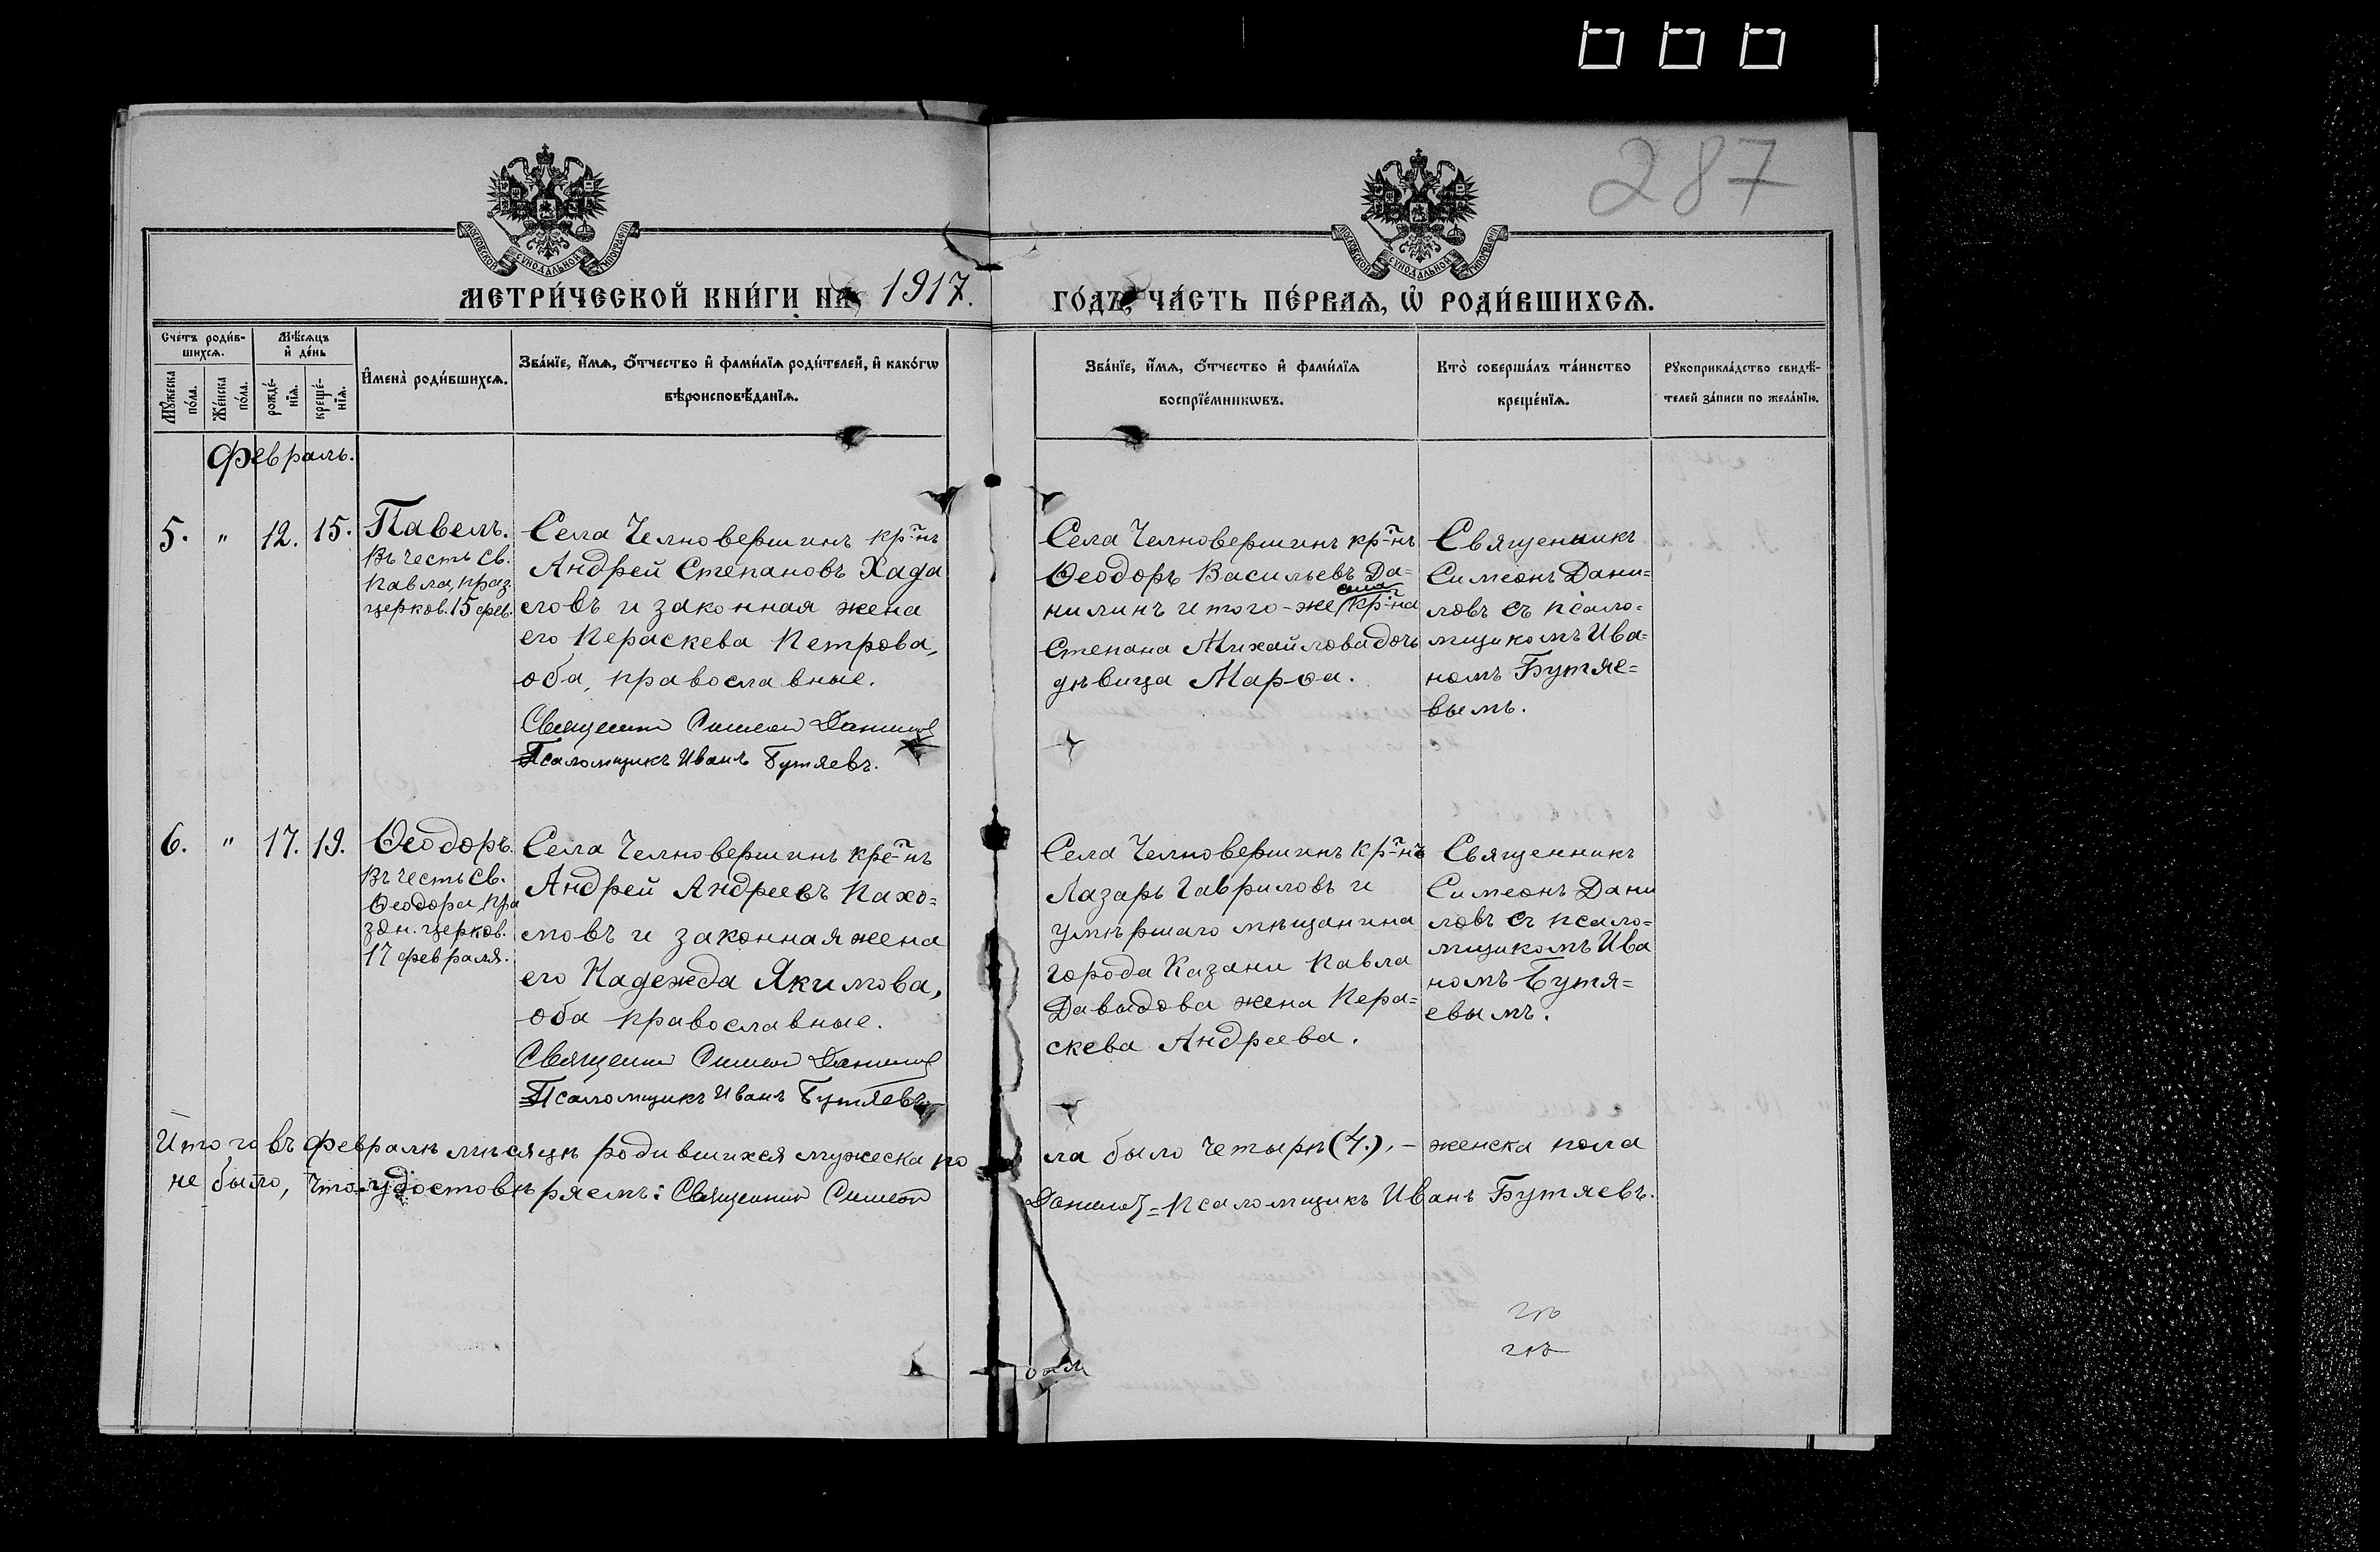 287
МОСКОВСКОЙ СУНОДАЛЬНОЙ ТИПОГРАФІИ
МОСКОВСКОЙ СУНОДАЛЬНОЙ ТИПОГРАФІИ
МЕТРИ́ЧЕСКОЙ КНИ́ГИ НА 1917.
ГО́ДЪ, ЧА́СТЬ ПЕ́РВАѦ, Ѡ҆ РОДИ́ВШИХСѦ.
Сче́тъ роди́в-
шихсѧ.
Мѣ́сѧцъ
и҆ де́нь
Мꙋ́жеска
по́ла.
Же́нска
по́ла.
рожде́-
нїѧ.
креще́-
нїѧ.
И҆мена̀ роди́вшихсѧ.
Зва́нїе, и҆́мѧ, ѻ҆́тчество и҆ фами́лїѧ роди́телей, и҆ како́гѡ
вѣроисповѣ́данїѧ.
Зва́нїе, и҆́мѧ, ѻ҆́тчество и҆ фами́лїѧ
воспрїе́мникѡвъ.
Кто̀ соверша́лъ та́инство
креще́нїѧ.
Рꙋкоприкла́дство свидѣ́-
телей за́писи по жела́нїю.
Февраль.
5. " 12. 15.
Павелъ.
Въ честь св.
Павла, праз.
церков. 15 фев.
Села Челновершинъ кр-нъ
Андрей Степановъ Хада
еловъ и законная жена
его Пераскева Петрова,
оба, православные.
Священник Симеон Данилов
Псаломщикъ Иванъ Бутяевъ.
Села Челновершинъ кр-нъ
Ѳеодоръ Васильевъ Да=
села
нилинъ и того-же кр-на
Степана Михайлова дочь
дѣвица Марѳа.
Священникъ
Симеонъ Дани=
ловъ съ псало=
мщикомъ Ива=
номъ Бутяе=
вымъ.
6. " 17. 19.
Ѳеодоръ.
Въ честь св.
Ѳеодора, пра
здн. церков.
17 февраля.
Села Челновершинъ кре-нъ
Андрей Андреевъ Пахо=
мовъ и законная жена
его Надежда Якимова,
оба православные.
Священник Симеон Данилов
Псаломщикъ Иванъ Бутяевъ
Села Челновершинъ кр-нъ
Лазарь Гавриловъ и
умѣршаго мѣщанина
города Казани Павла
Давыдова жена Пера=
скева Андреева.
Священникъ
Симеонъ Дани
ловъ съ псало=
мщикомъ Ива
номъ Бутя=
евымъ.
Итого въ февралѣ мѣсяцѣ родившихся мужеска по
ла было четырѣ (4.), - женска пола
не было, что удостовѣряемъ: Священник Симеон
Данилов = Псаломщикъ Иванъ Бутяевъ.